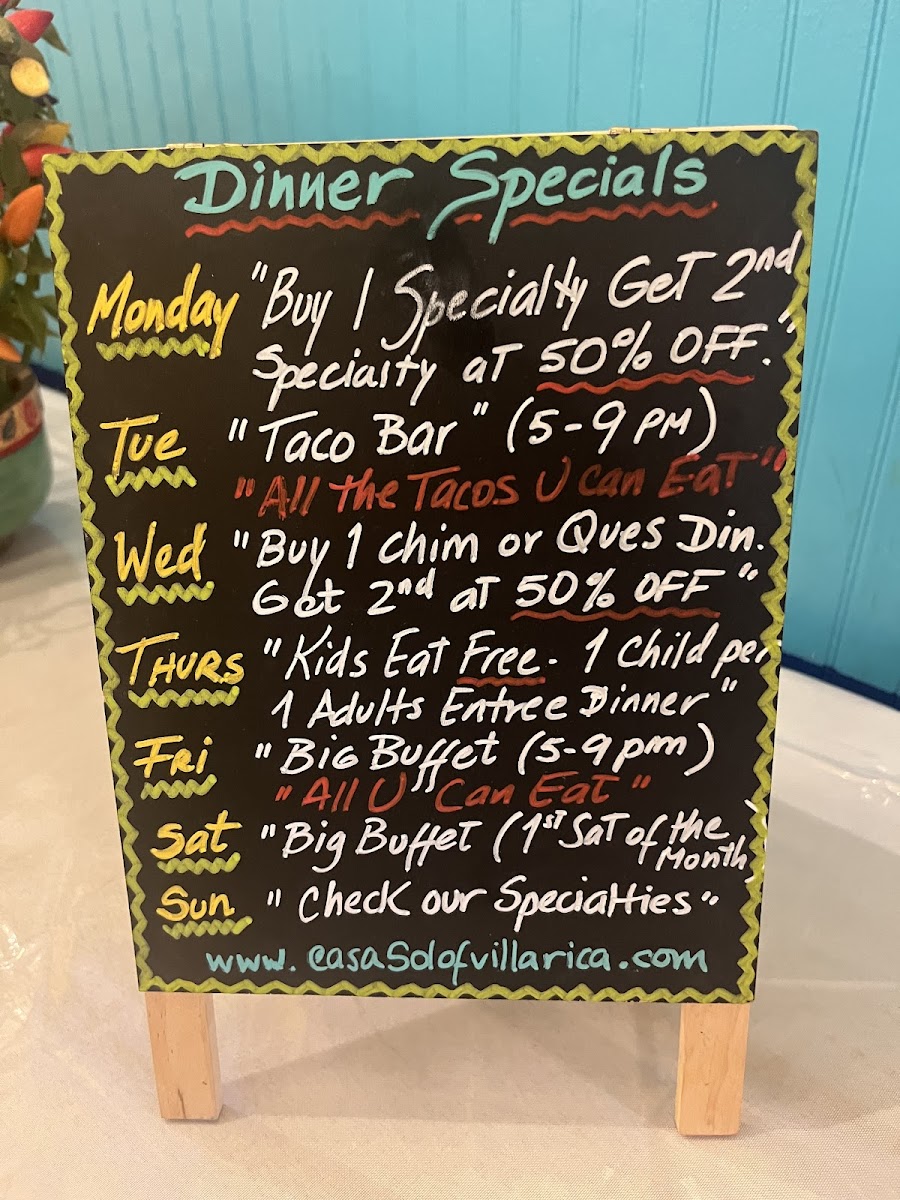 Dinner Specials
Monday "Buy 1 Specialty Get 2nd
Specialty at 50% OFF."
Tue "Taco Bar" (5-9 PM)
"All the Tacos U Can Eat"
Wed "Buy 1 chim or Ques Din.
Get 2nd at 50% OFF"
THURS "Kids Eat Free. 1 Child per
1 Adults Entree Dinner"
Fri "Big Buffet (5-9pm)
"All U Can Eat"
Sat "Big Buffet (1st Sat of the
Month)
Sun "Check our Specialties"
www.casaSolofvillarica.com